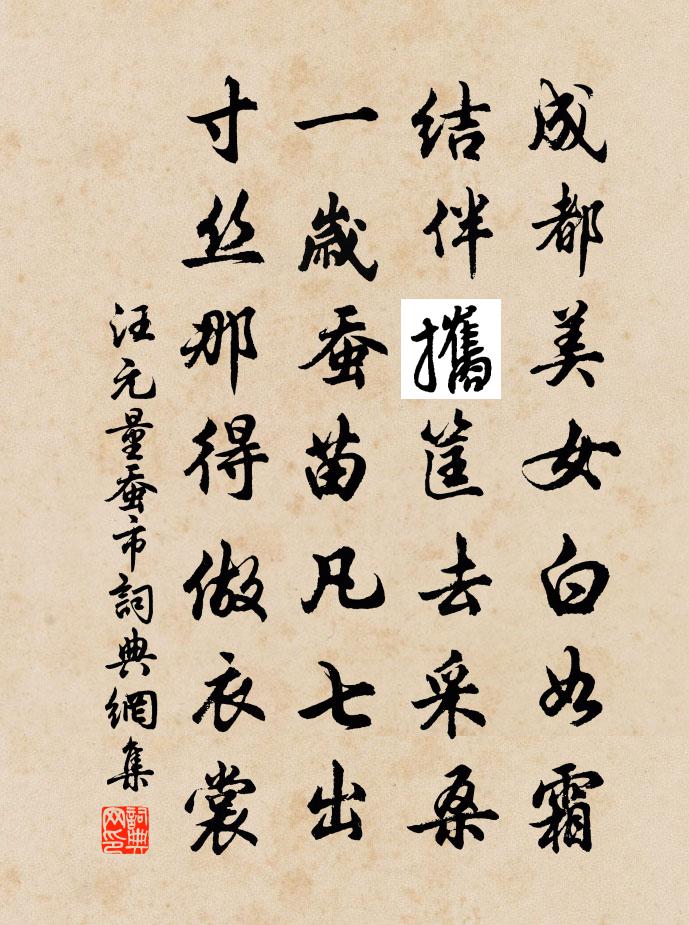 成都美女白如霜
结伴攜筐去采桑
一歲蚕苗凡七出
寸丝那得做衣裳
汪元量蚕市詞典網集
詞典网印